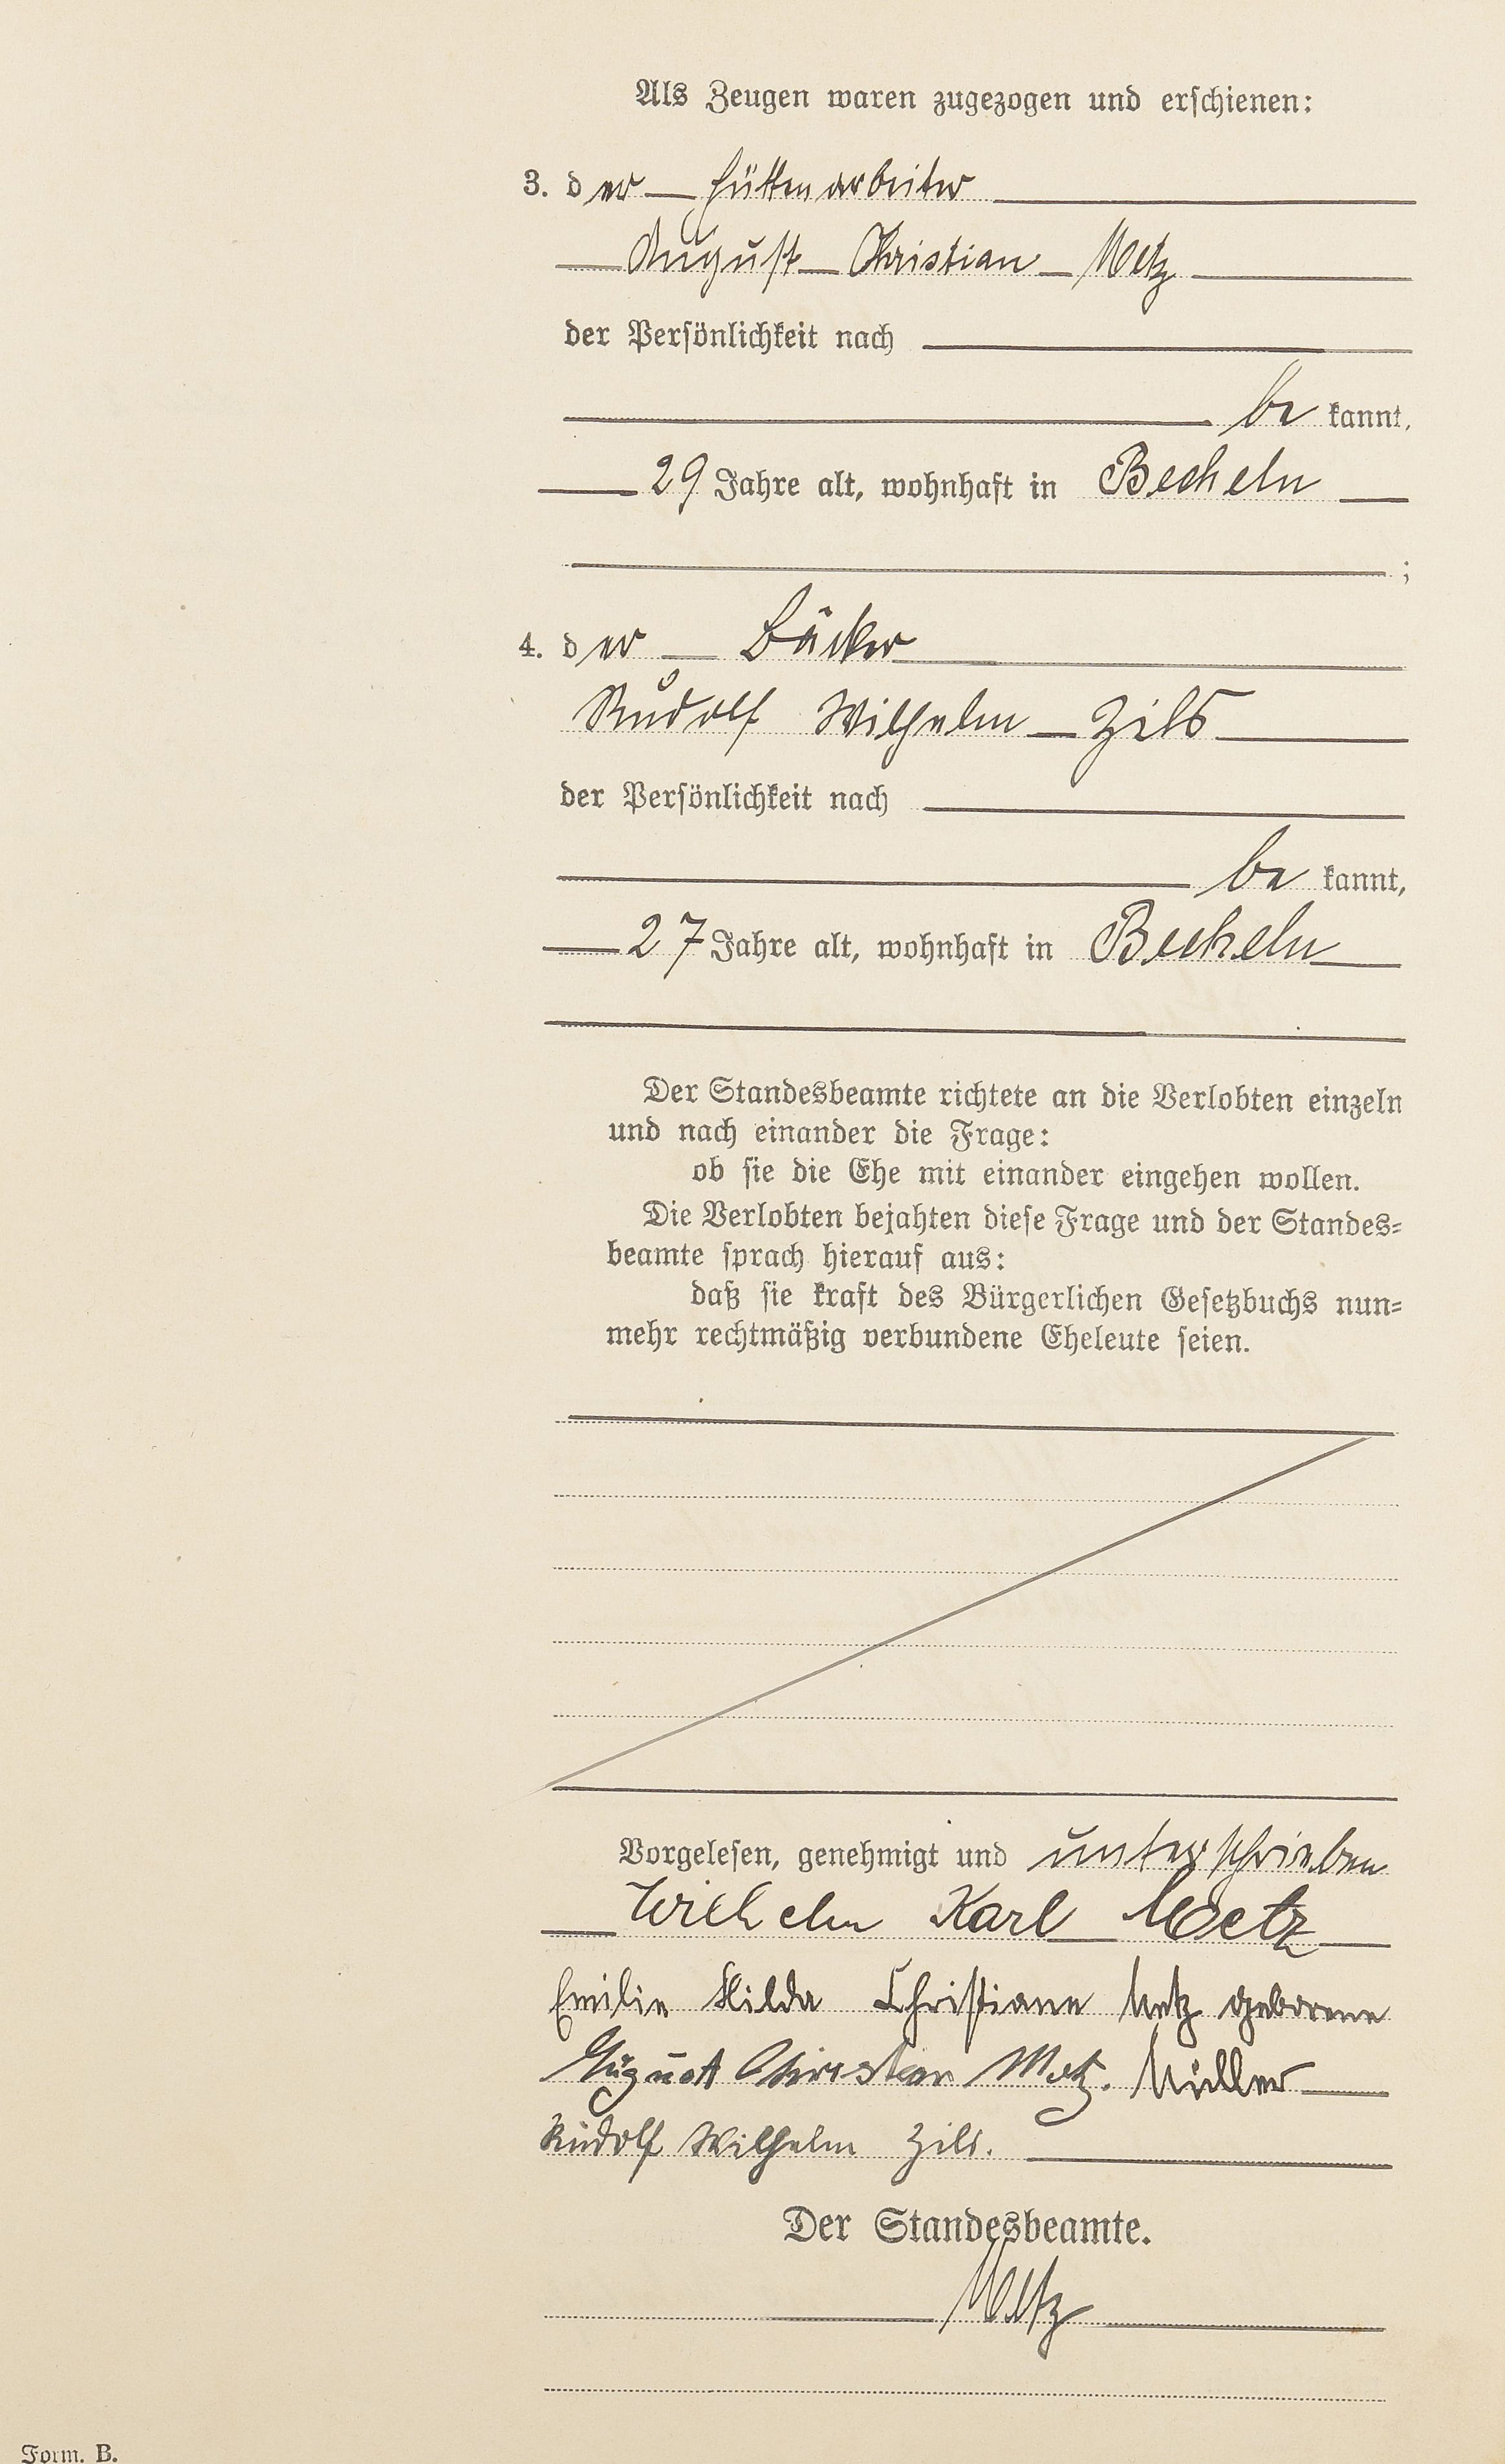 Als Zeugen waren zugezogen und erschienen:
3. der Hüttenarbeiter
August Christian Metz
der Persönlichkeit nach
be kannt,
29 Jahre alt, wohnhaft in Becheln
;
4. der Bäcker
Rudolf Wilhelm Zils
der Persönlichkeit nach
be kannt,
27 Jahre alt, wohnhaft in Becheln
Der Standesbeamte richtete an die Verlobten einzeln
und nach einander die Frage:
ob sie die Ehe mit einander eingehen wollen.
Die Verlobten bejahten diese Frage und der Standes=
beamte sprach hierauf aus:
daß sie kraft des Bürgerlichen Gesetzbuchs nun=
mehr rechtmäßig verbundene Eheleute seien.
Vorgelesen, genehmigt und unterschrieben
Wilhelm Karl Metz
Emilie Hilda Christiane Metz geborene
August Christian Metz. Müller
Rudolf Wilhelm Zils.
Der Standesbeamte.
Metz
Form. B.